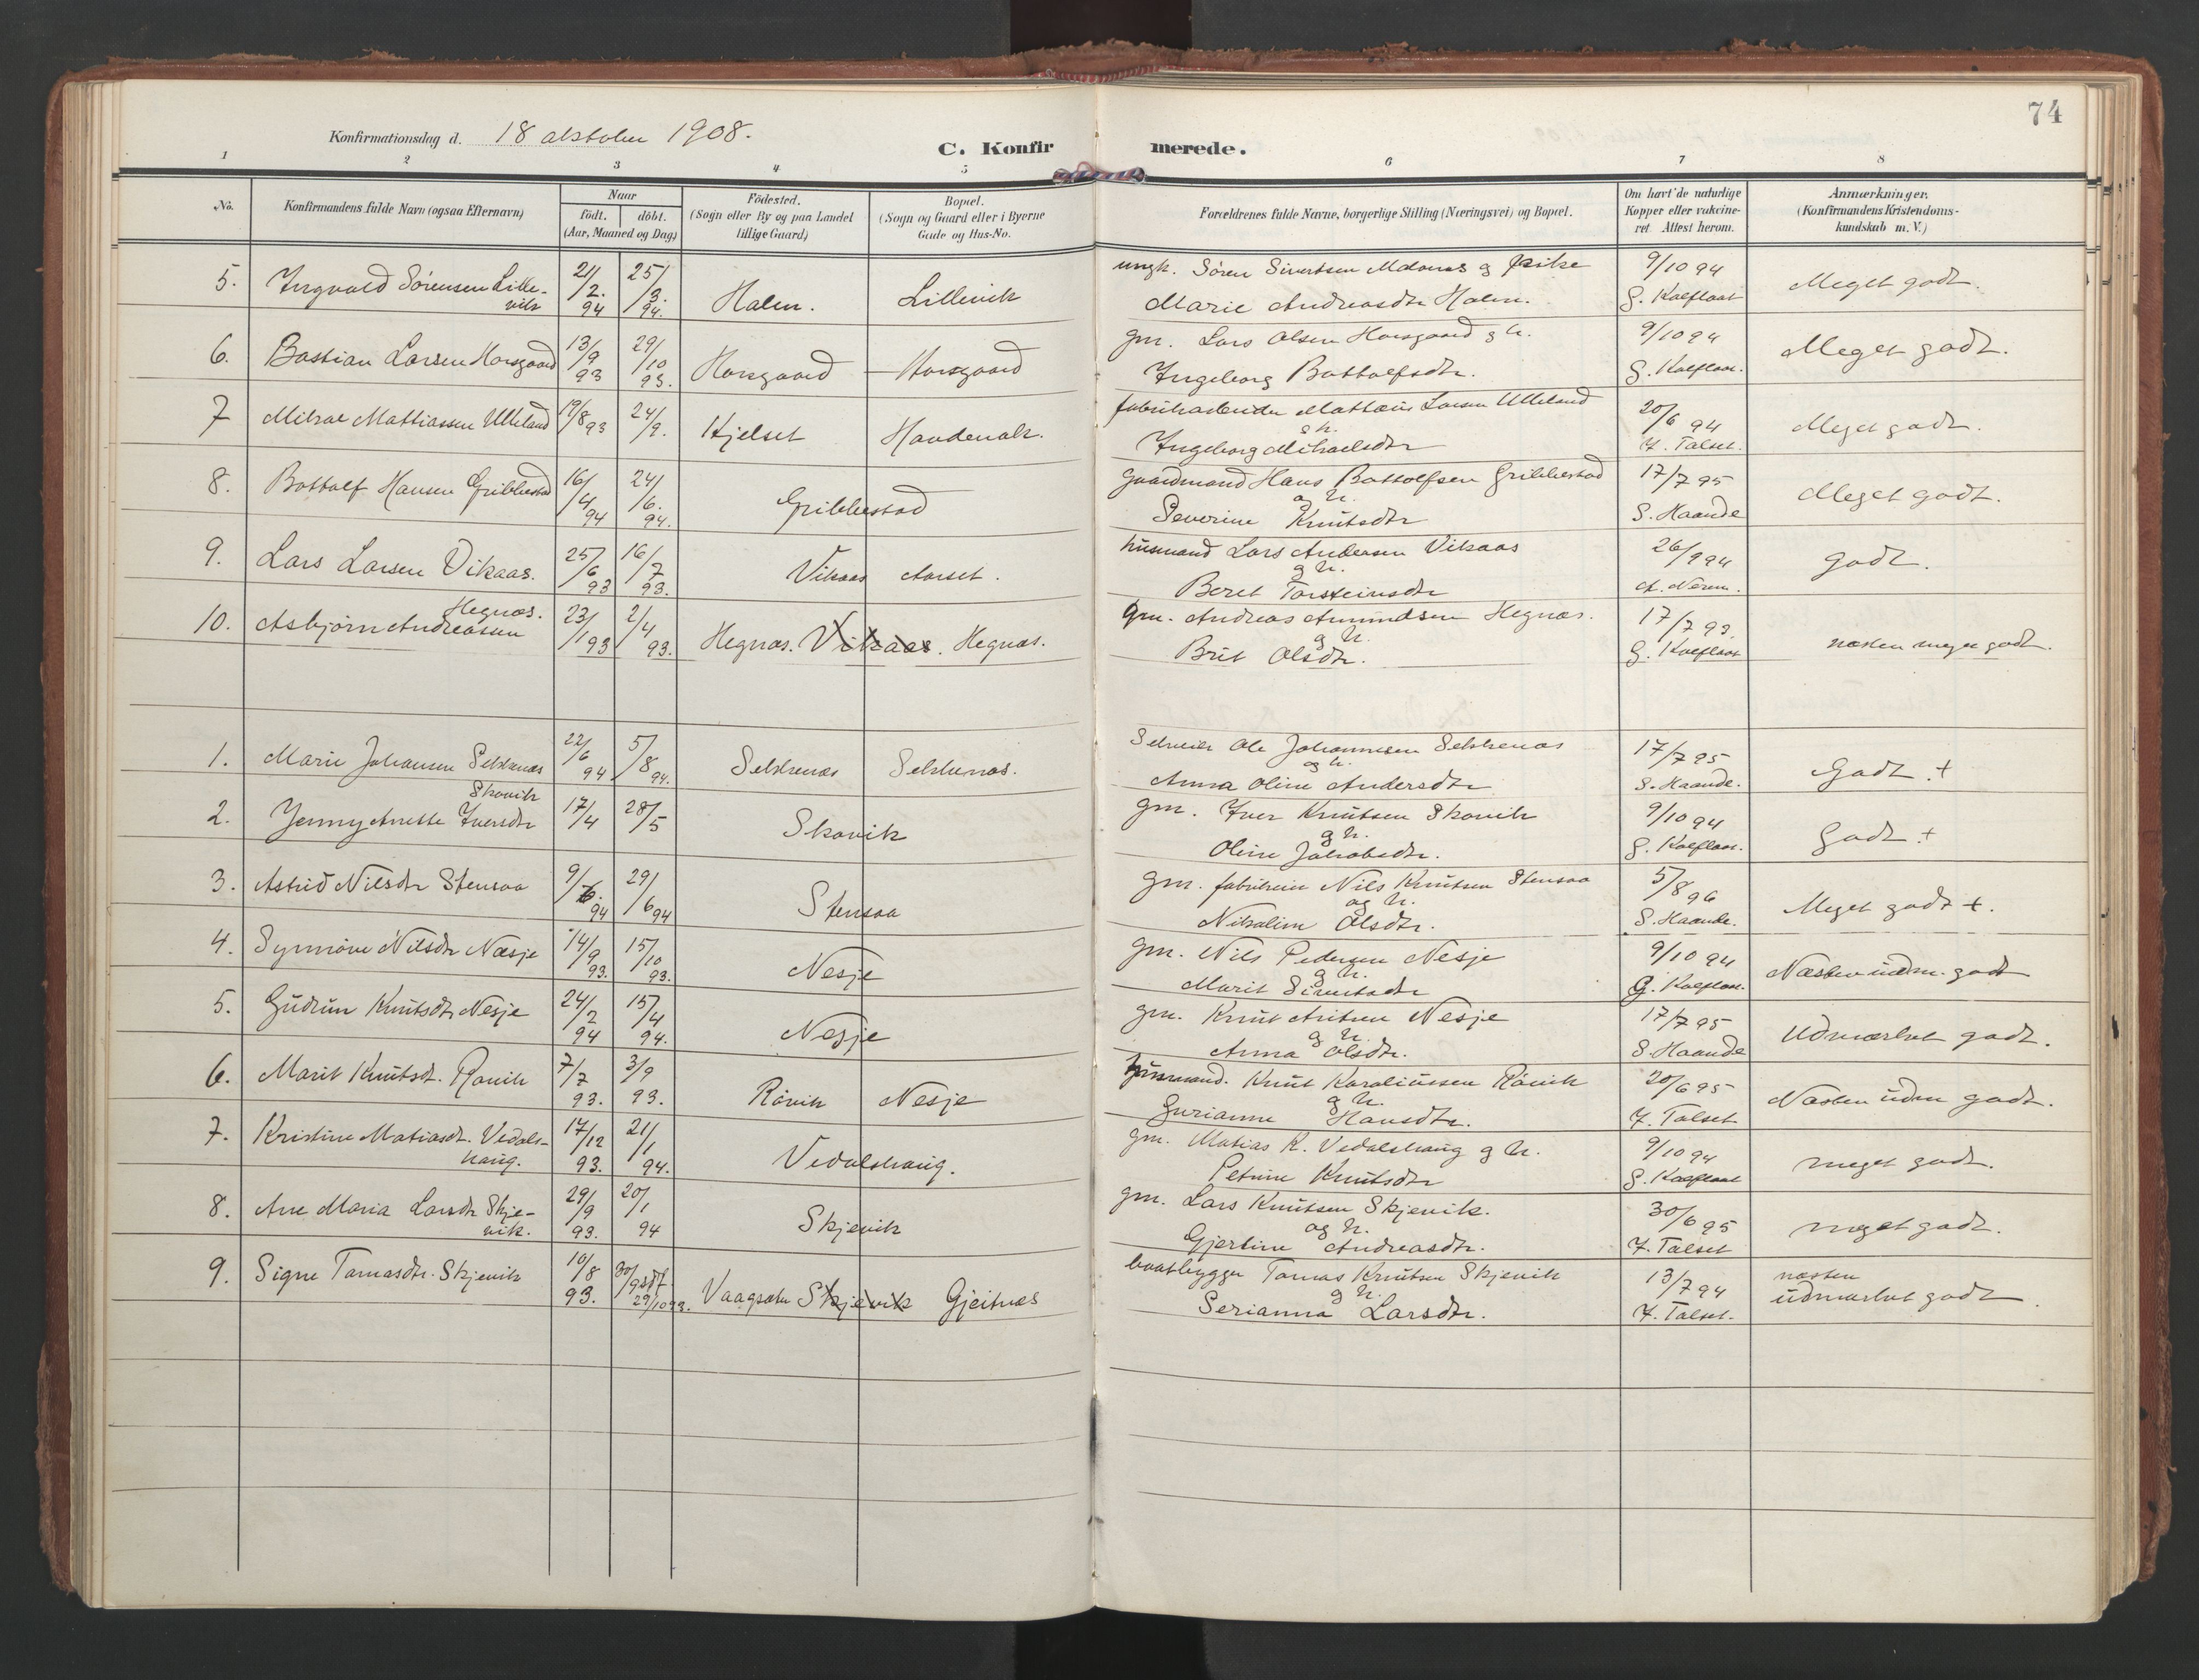 74
Konfirmationsdag d. 18 oktober 1908.
C. Konfirmerede.
1 2 3 4 5 6 7 8
No.
Konfirmandens fulde Navn (ogsaa Efternavn)
Naar
födt. döbt.
(Aar, Maaned og Dag)
Födested.
(Sogn eller By og paa Landet
tillige Gaard)
Bopæl.
(Sogn og Gaard eller i Byerne
Gade og Hus-No.
Forældrenes fulde Navne, borgerlige Stilling (Næringsvei) og Bopæl.
Om havt de naturlige
Kopper eller vakcine-
ret. Attest herom.
Anmærkninger.
(Konfirmandens Kristendoms-
kundskab m. V.)
5. Ingvald Sörensen Lille-
vik
21/2. 94 25/3. 94. Holm. Lillevik
ungk. Sören Sivertsen Malones g pike
Marie Andreasdtr Holm.
9/10 94
G. Kolflaat
Meget godt.
6. Bastian Larsen Horsgaard 13/9 93 29/10 93. Horsgaard Horsgaard
gm. Lars Olsen Horsgaard g h.
Ingeborg Bottolfsdtr.
9/10 94
G. Kolflaat.
Meget godt.
7 Mikal Mattiassen Ulleland 19/8 93 24/9. Hjelset
fabrikarbeider Mattæus Larsen Ulleland
g h.
Ingeborg Mikaelsdtr
20/6 94
I. Talset.
Meget godt.
8. Bottolf Hansen Gribbestad 16/4 94 24/6. 94. Gribbestad
Gaardmand Hans Bottolfsen Gribbestad
og h.
Severine Knutsdtr
17/7 95
S. Haande
Meget godt.
9. Lars Larsen Vikaas. 25/6 93 16/7 93. Vikaas Aarset.
husmand Lars Andersen Vikaas
g h.
Beret Torsteinsdtr
26/9 94
godt.
10. Asbjörn Andreassen Hegnæs. 23/1 93 2/4 93. Hegnæs. Vikaas. Hegnæs.
gm. Andreas Amundsen Hegnæs.
g h.
Brit Olsdtr.
17/7 93.
G. Kolflaat
næsten meget godt.
1. Marie Johansen Selsknæs 22/6 94 5/8 94. Selsknæs Selsknæs.
Ole Johannesen Selsknæs
og h.
Anna Oline Andersdtr
17/7 95
S. Haande.
Godt. +
2. Jenny Anette Iversdtr Skovik 17/4 28/5 Skovik
gm. Iver Knutsen Skovik
g h.
Oline Jakobsdtr.
9/10 94
G. Kolflaat.
Godt +
3. Astrid Nilsdtr Stensaa 9/6. 94 29/6 94 Stensaa
gm. fabrikeier Nils Knutsen Stensaa
og h.
Nikoline Olsdtr.
5/8 96
S. Haande.
Meget godt +.
4. Synnöve Nilsdtr Næsje 14/9 93. 15/10 93. Nesje
gm. Nils Pedersen Nesje
g h.
Marit Sivertsdtr
9/10 94
G. Kolflaat.
Næsten udm. godt
5. Gudrun Knutsdtr Nesje 24/2 94 15/4 94. Nesje
gm. Knut Nesje
g h.
Anna Olsdtr.
17/7 95
S. Haande
Udmærket godt.
6. Marit Knutsdt. Rövik 7/7 93. 3/9 93. Rövik Nesje
husmand. Knut Karoliussen Rövik
g h.
Gurianne Hansdtr.
20/6 95
I. Talset
Næsten udm godt.
7. Kristine Matiasdt. Vedals-
haug.
17/12 93. 21/1 94. Vedalshaug.
gm. Matias K. Vedalshaug g h.
Petrine Knutsdtr
9/10 94
G. Kolflaat
meget godt.
8. Ane Maria Larsdtr Skje-
vik.
29/9 93. 20/1 94 Skjevik
gm. Lars Knutsen Skjevik.
og h.
Gjertine Andreasdtr.
30/6 95
I. Talset
meget godt.
9. Signe Tomasdtr. Skjevik 10/8 93. 30/9 sdf. 29/10 93. Vaagsæter Skjevik Gjeitnes
baatbygger Tomas Knutsen Skjevik
g h.
Serianna Larsdtr.
13/7 94
I. Talset.
næsten
udmærket godt.